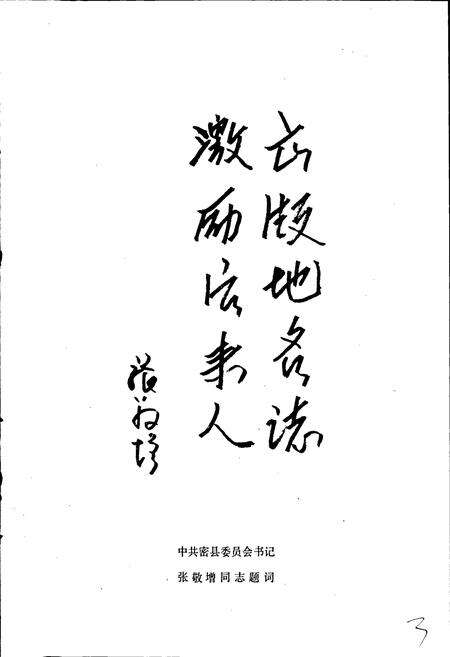 出版地名誌
激励后来人
张敬增
中共密县委员会书记
张敬增同志题词
3